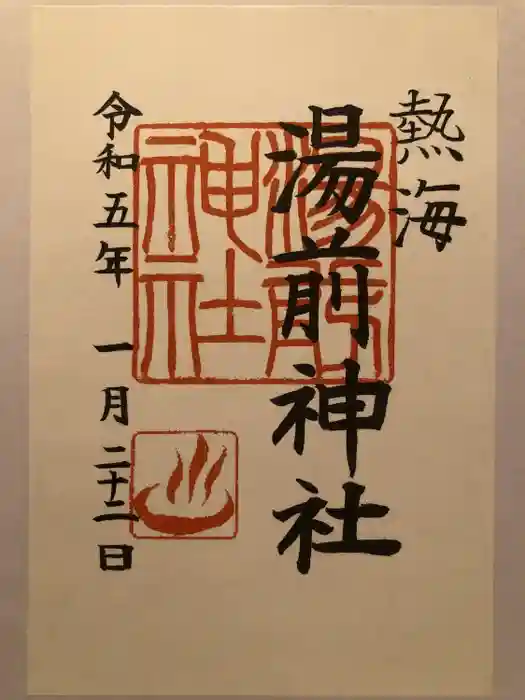 熱海
湯前神社
令和五年 一月二十二日
湯前
神社